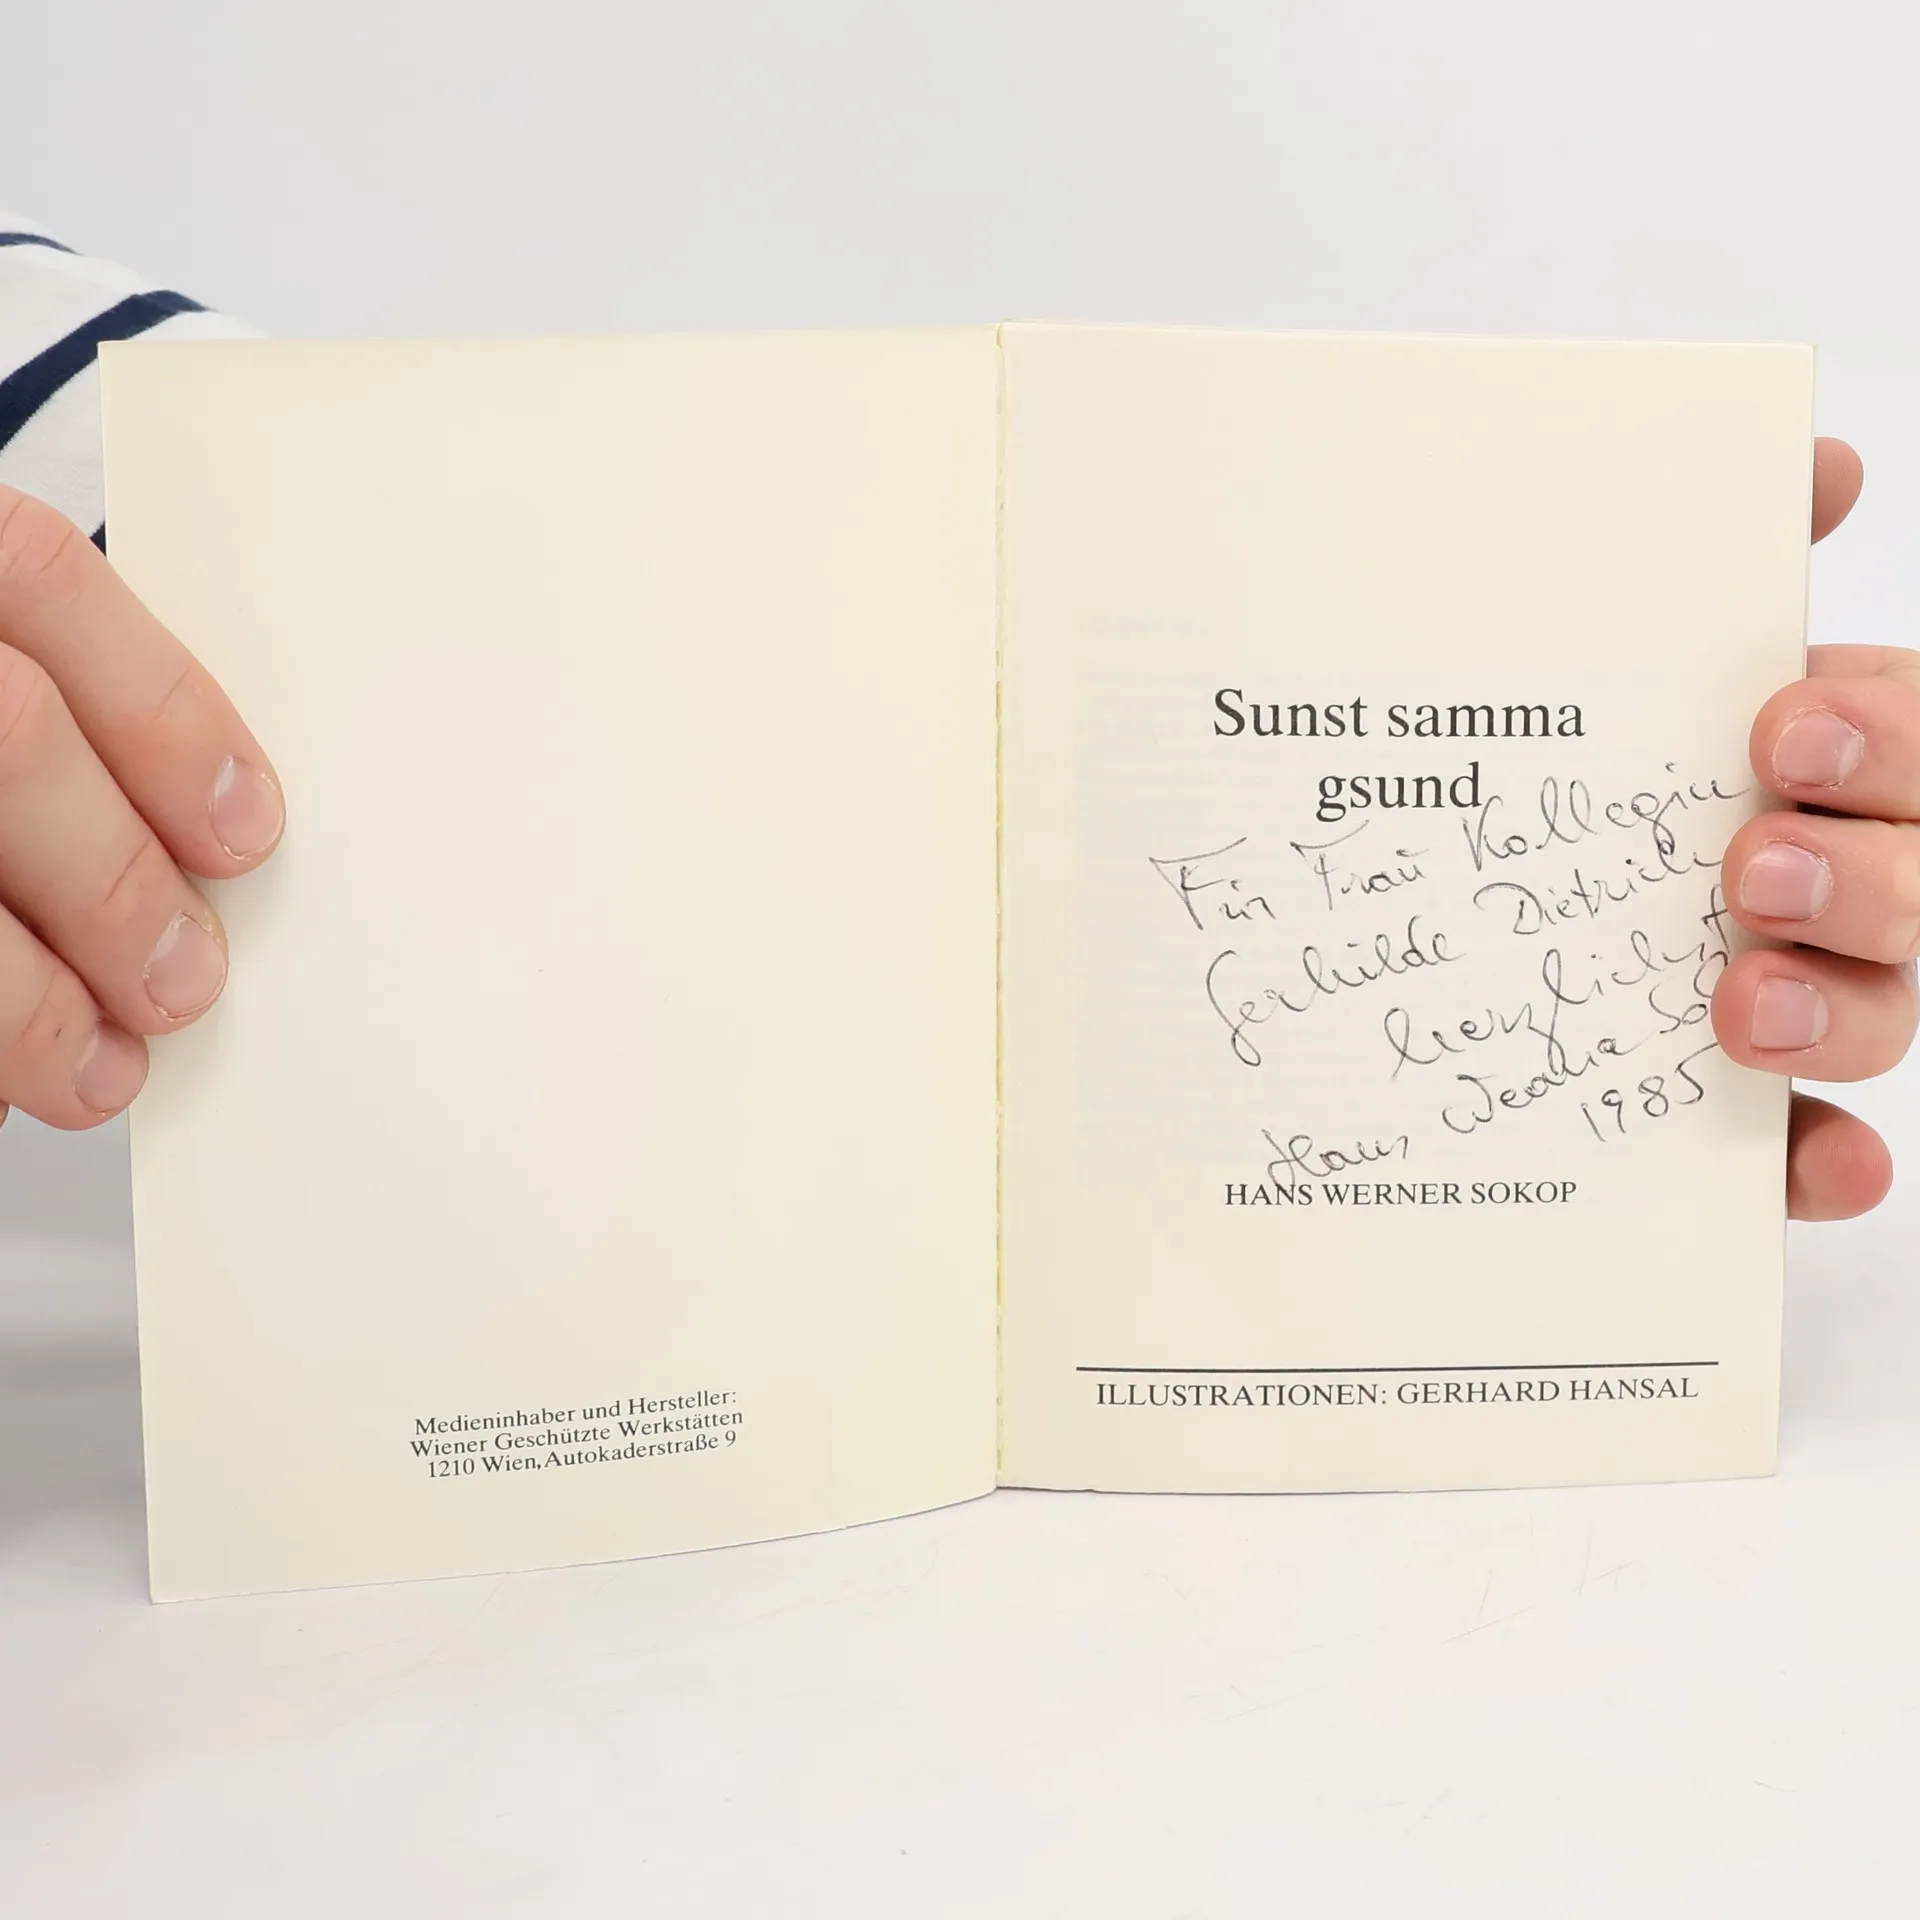 Medieninhaber und Hersteller:
Wiener Geschützte Werkstätten
1210 Wien, Autokaderstraße 9
Sunst samma
gsund
Für Frau Kollegin
Gerhilde Dietrich
herzlichst
Hans Werner
1985
HANS WERNER SOKOP
ILLUSTRATIONEN: GERHARD HANSAL